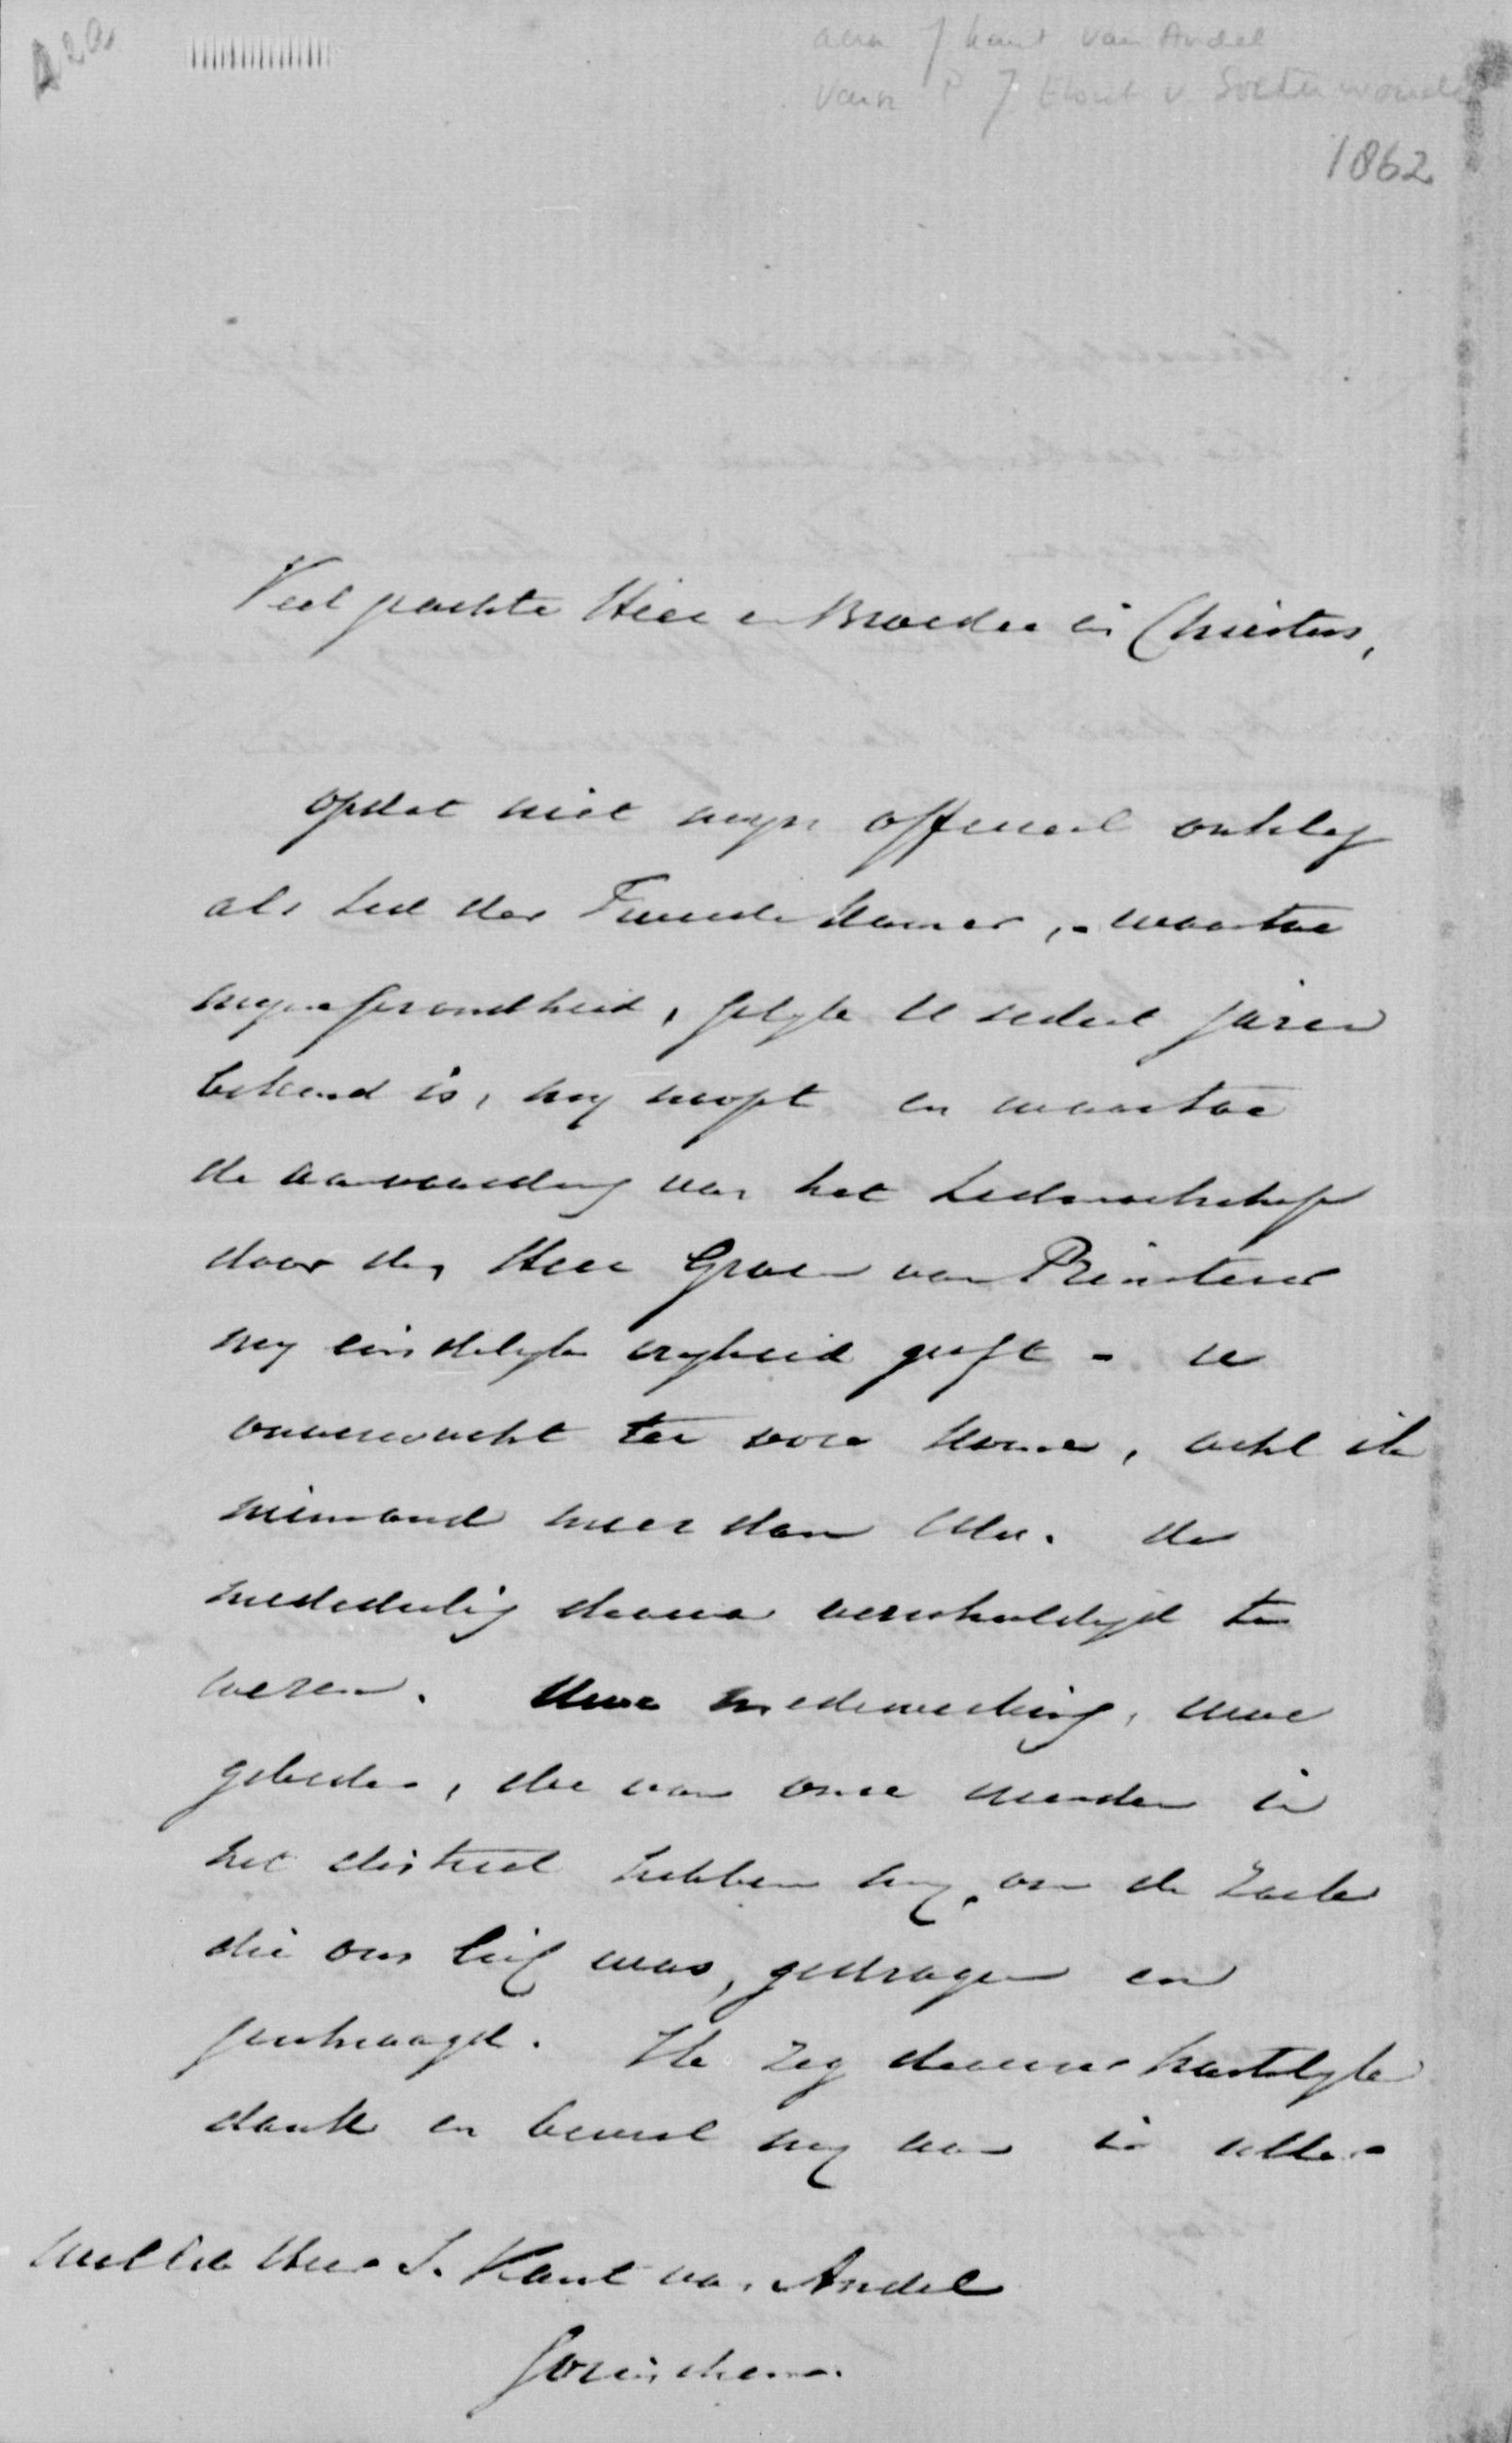 A 2a
aan J Kant van Andel
van P J Elout v Soeterwoude
1862
Veel geachte Heer en Broeder in Christus,
opdat niet mijn officieel ontslag
als Lid der Tweede Kamer, - waartoe
mijne gezondheid, gelijk U sedert jaren
bekend is, mij noopt en waartoe
de aanvaarding van het Lidmaatschap
door den Heer Groen van Prinsterer
mij eindelijk vrijheid geeft - U
onverwacht ter oore kome, acht ik
niemand meer dan Uw. de
mededeeling daarvan verschuldigd te
wezen. Uwe medewerking, uwe
gebeden, die van onze vrienden in
het district hebben mij, om de zaak
die ons lief was, gedragen en
geschraagd. Ik zeg daarvoor hartelijk
dank en beveel mij aan in aller
Weled. Heer J. Kant van Andel
Gorinchem.